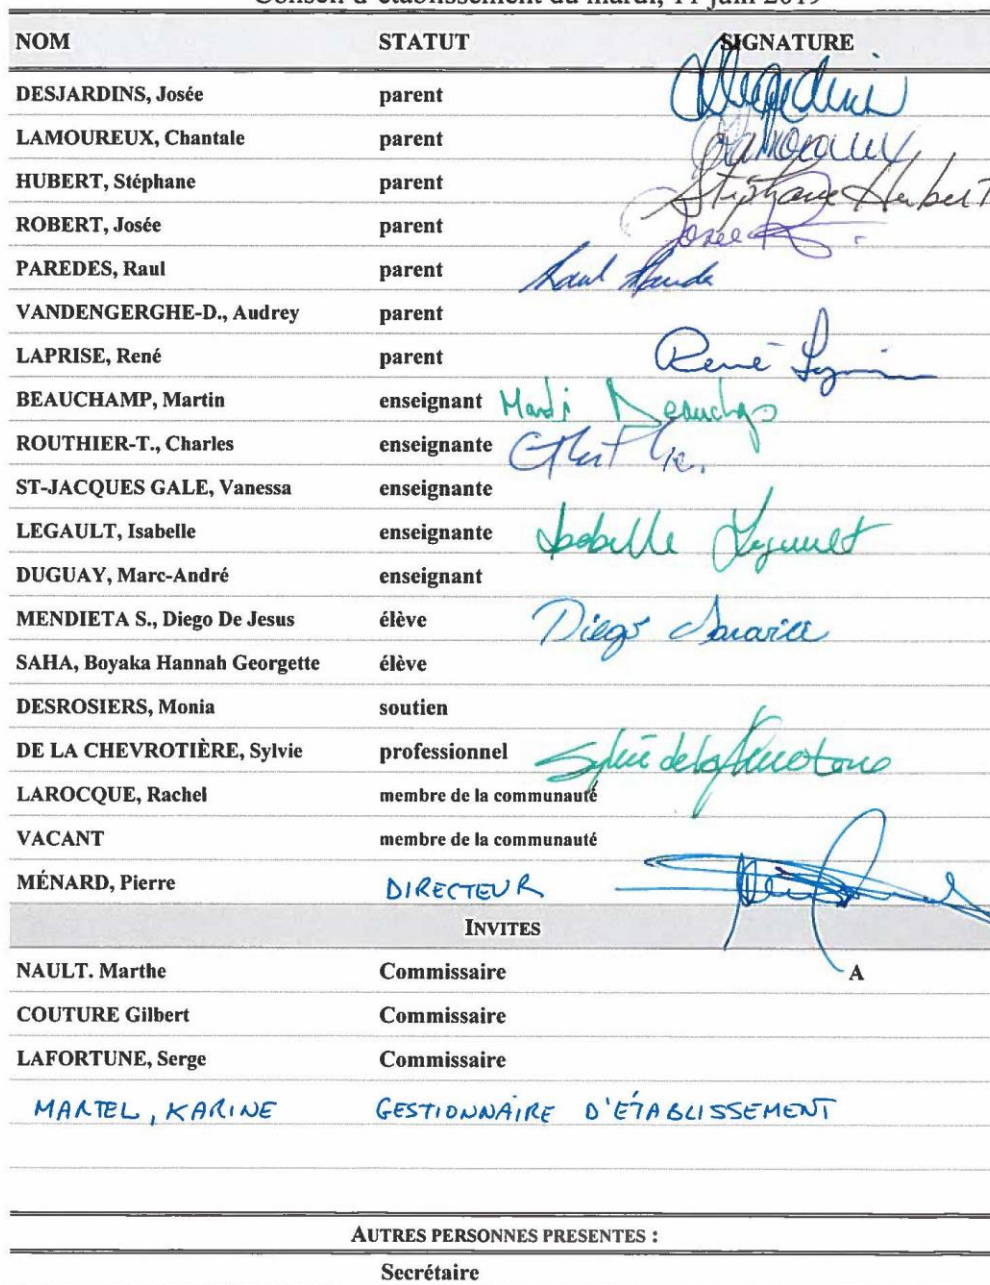 Conseil d'établissement du mardi, 11 juin 2019
NOM STATUT SIGNATURE
DESJARDINS, Josée parent
LAMOUREUX, Chantale parent Lamoureux
HUBERT, Stéphane parent Stéphane Hubert
ROBERT, Josée parent Josée R.
PAREDES, Raul parent Raul
VANDENGERGHE-D., Audrey parent
LAPRISE, René parent René
BEAUCHAMP, Martin enseignant
ROUTHIER-T., Charles enseignante
ST-JACQUES GALE, Vanessa enseignante
LEGAULT, Isabelle enseignante Isabelle Legault
DUGUAY, Marc-André enseignant
MENDIETA S., Diego De Jesus élève Diego
SAHA, Boyaka Hannah Georgette élève
DESROSIERS, Monia soutien
DE LA CHEVROTIÈRE, Sylvie professionnel Sylvie de la
LAROCQUE, Rachel membre de la communauté
VACANT membre de la communauté
MÉNARD, Pierre DIRECTEUR
INVITES
NAULT. Marthe Commissaire A
COUTURE Gilbert Commissaire
LAFORTUNE, Serge Commissaire
MARTEL, KARINE GESTIONNAIRE D'ÉTABLISSEMENT
AUTRES PERSONNES PRESENTES :
Secrétaire